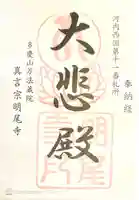 奉納経
河内西国第十一番札所
大悲殿
多慶山万法蔵院
真言宗明尾寺